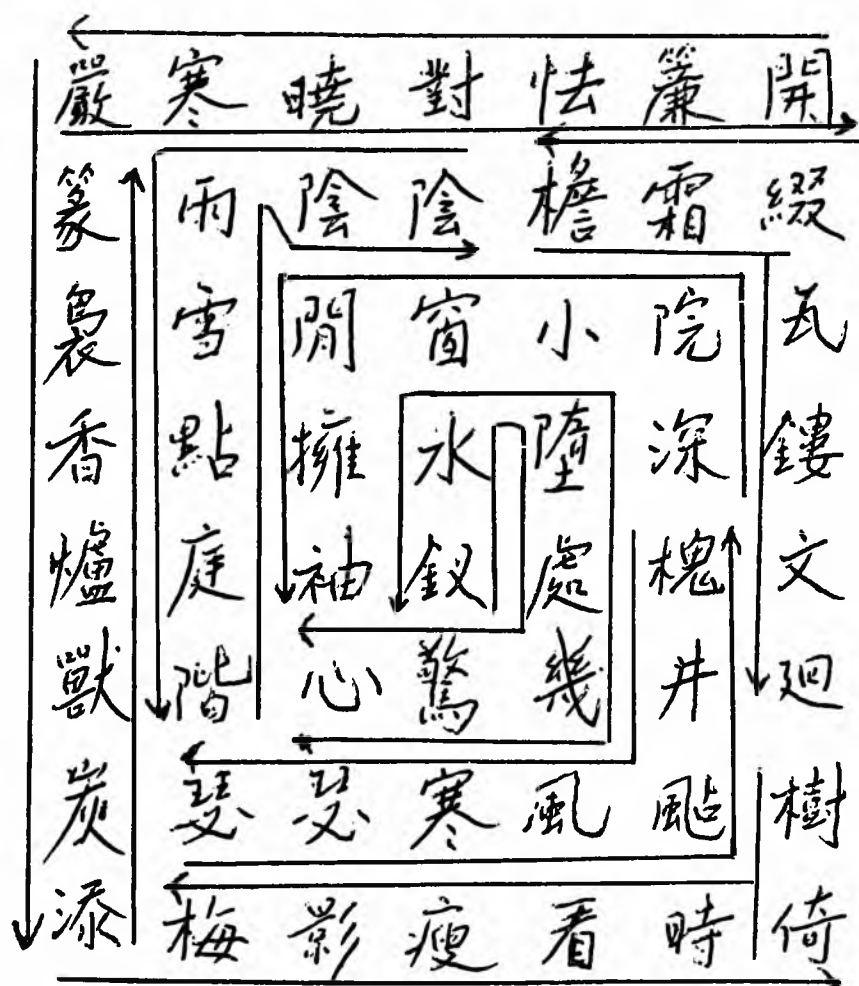 嚴寒曉對怯簾開
篆雨陰陰檐霜綴
裊雪閒窗小院瓦
香點擁水墮深鏤
爐庭袖釵處槐文
獸階心驚幾井廻
炭瑟瑟寒風颭樹
添梅影瘦看時倚